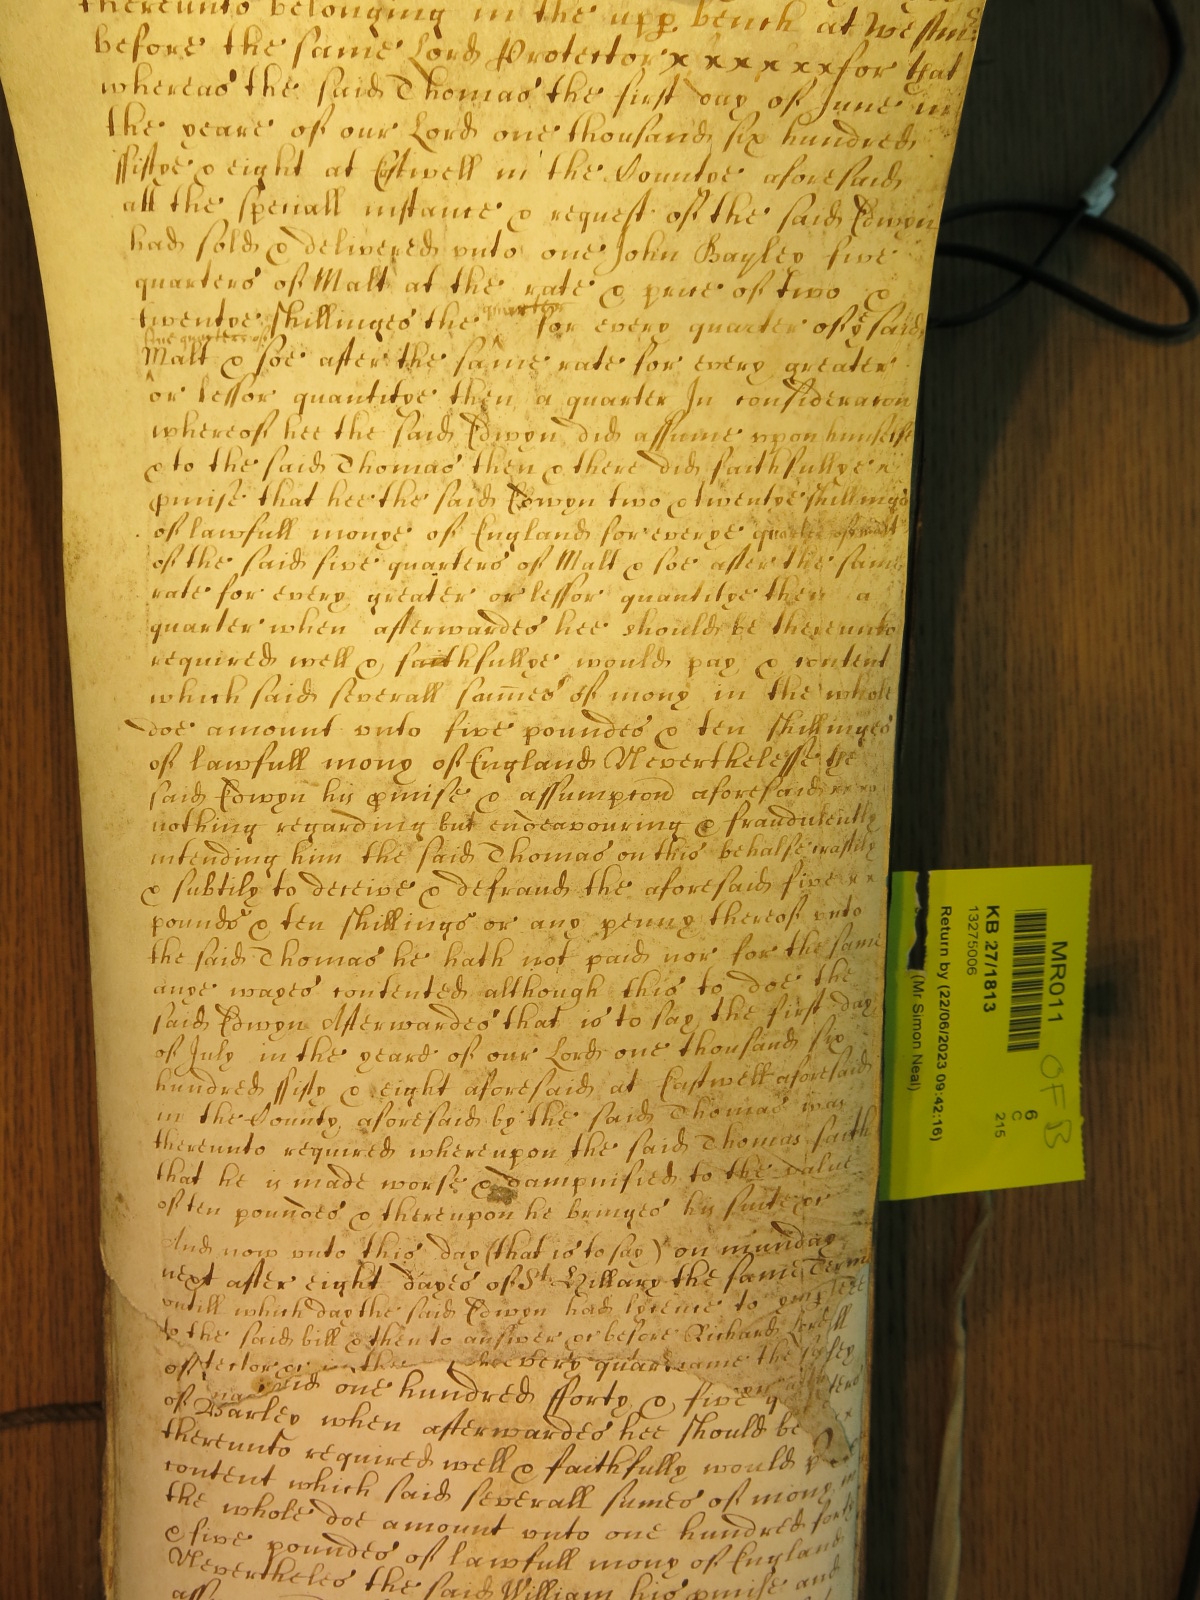 thereunto belonging in the upp bench at Westmr
before the same Lord Protector x x x x x x for that
whereas the said Thomas the first day of June in
the yeare of our Lord one thousand six hundred
ffiftye & eight at Estwell in the Countye aforesaid
att the speciall instance & request of the said Edwyn
had sold & delivered vnto one John Bayley five
quarters of Malt at the rate & price of two &
twentye shillinges the quarter for every quarter of ye said
five quarters of
Malt & soe after the same rate for every greater
or lessor quantitye then a quarter In consideracon
whereof hee the said Edwyn did assume vpon himselfe
& to the said Thomas then & there did faithfullye
pmise that hee the said Edwyn two & twentye shillings
of lawfull monye of England for everye quarter of malt
of the said five quarters of Malt & soe after the same
rate for every greater or lessor quantitye then a
quarter when afterwardes hee should be thereunto
required well & faithfullye would pay & content
which said severall sumes of mony in the whole
doe amount vnto five poundes & ten shillinges
of lawfull mony of England Neverthelesse the
said Edwyn his pmise & assumpcond aforesaid
nothing regarding but endeavouring & fraudulently
intending him the said Thomas on this behalfe craftily
& subtily to deceive & defraud the aforesaid five
pounds & ten shillings or any penny thereof vnto
the said Thomas he hath not paid nor for the same
anye wayes contented although this to doe the
said Edwyn Afterwardes that is to say the first day
of July in the yeare of our Lord one thousand six
hundred ffifty & eight aforesaid at Eastwell aforesaid
in the County aforesaid by the said Thomas was
thereunto required whereupon the said Thomas saith
that he is made worse & dampnified to the value
of ten poundes & thereupon he bringes his suite &c
And now vnto this day (that is to say) on munday
next after eight dayes of St Hillary the same Terme
vntill which day the said Edwyn had lycence to
to the said bill & then to answer &c before Richard Lord
every quar came the
said one hundred fforty & five
of Barley when afterwardes hee should be
thereunto required well & faithfully would
content which said severall sumes of mony in
the whole doe amount vnto one hundred forty
& five poundes of lawfull mony of England
Nevertheles the said William his pmise and
MR011
KB 27/1813
13275006
Return by (22/06/2023 09:42:16)
(Mr Simon Neal)
6
C
215
OFB